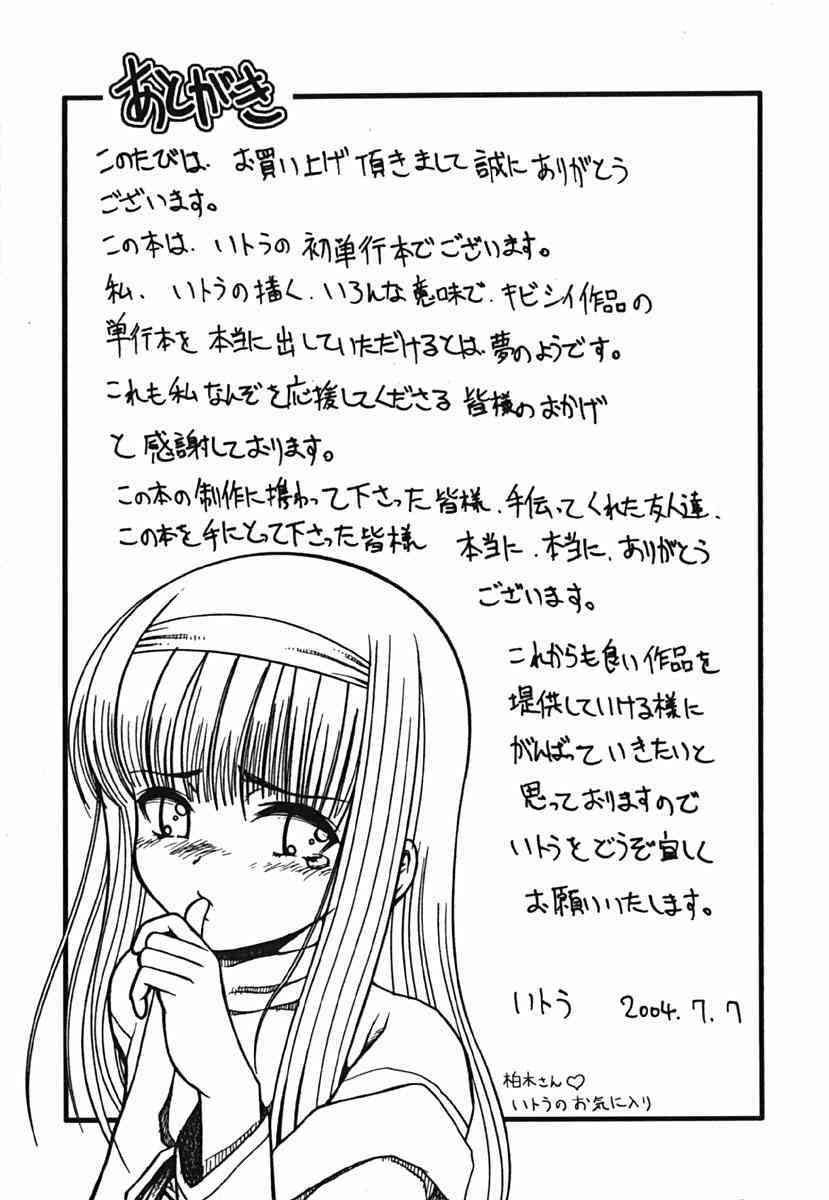 あとがき
このたびは、お買い上げ頂きまして誠にありがとう
ございます。
この本は、いトうの初単行本でございます。
私、いトうの描く、いろんな意味で、キビシイ作品の
単行本を本当に出していただけるとは、夢のようです。
これも私なんぞを応援してくださる皆様のおかげ
と感謝しております。
この本の制作に携わって下さった皆様、手伝ってくれた友人達、
この本を手にとって下さった皆様 本当に、本当に、ありがとう
ございます。
これからも良い作品を
提供していける様に
がんばっていきたいと
思っておりますので
いトうをどうぞ宜しく
お願いいたします。
いトう 2004.7.7
柏木さん♡
いトうのお気に入り